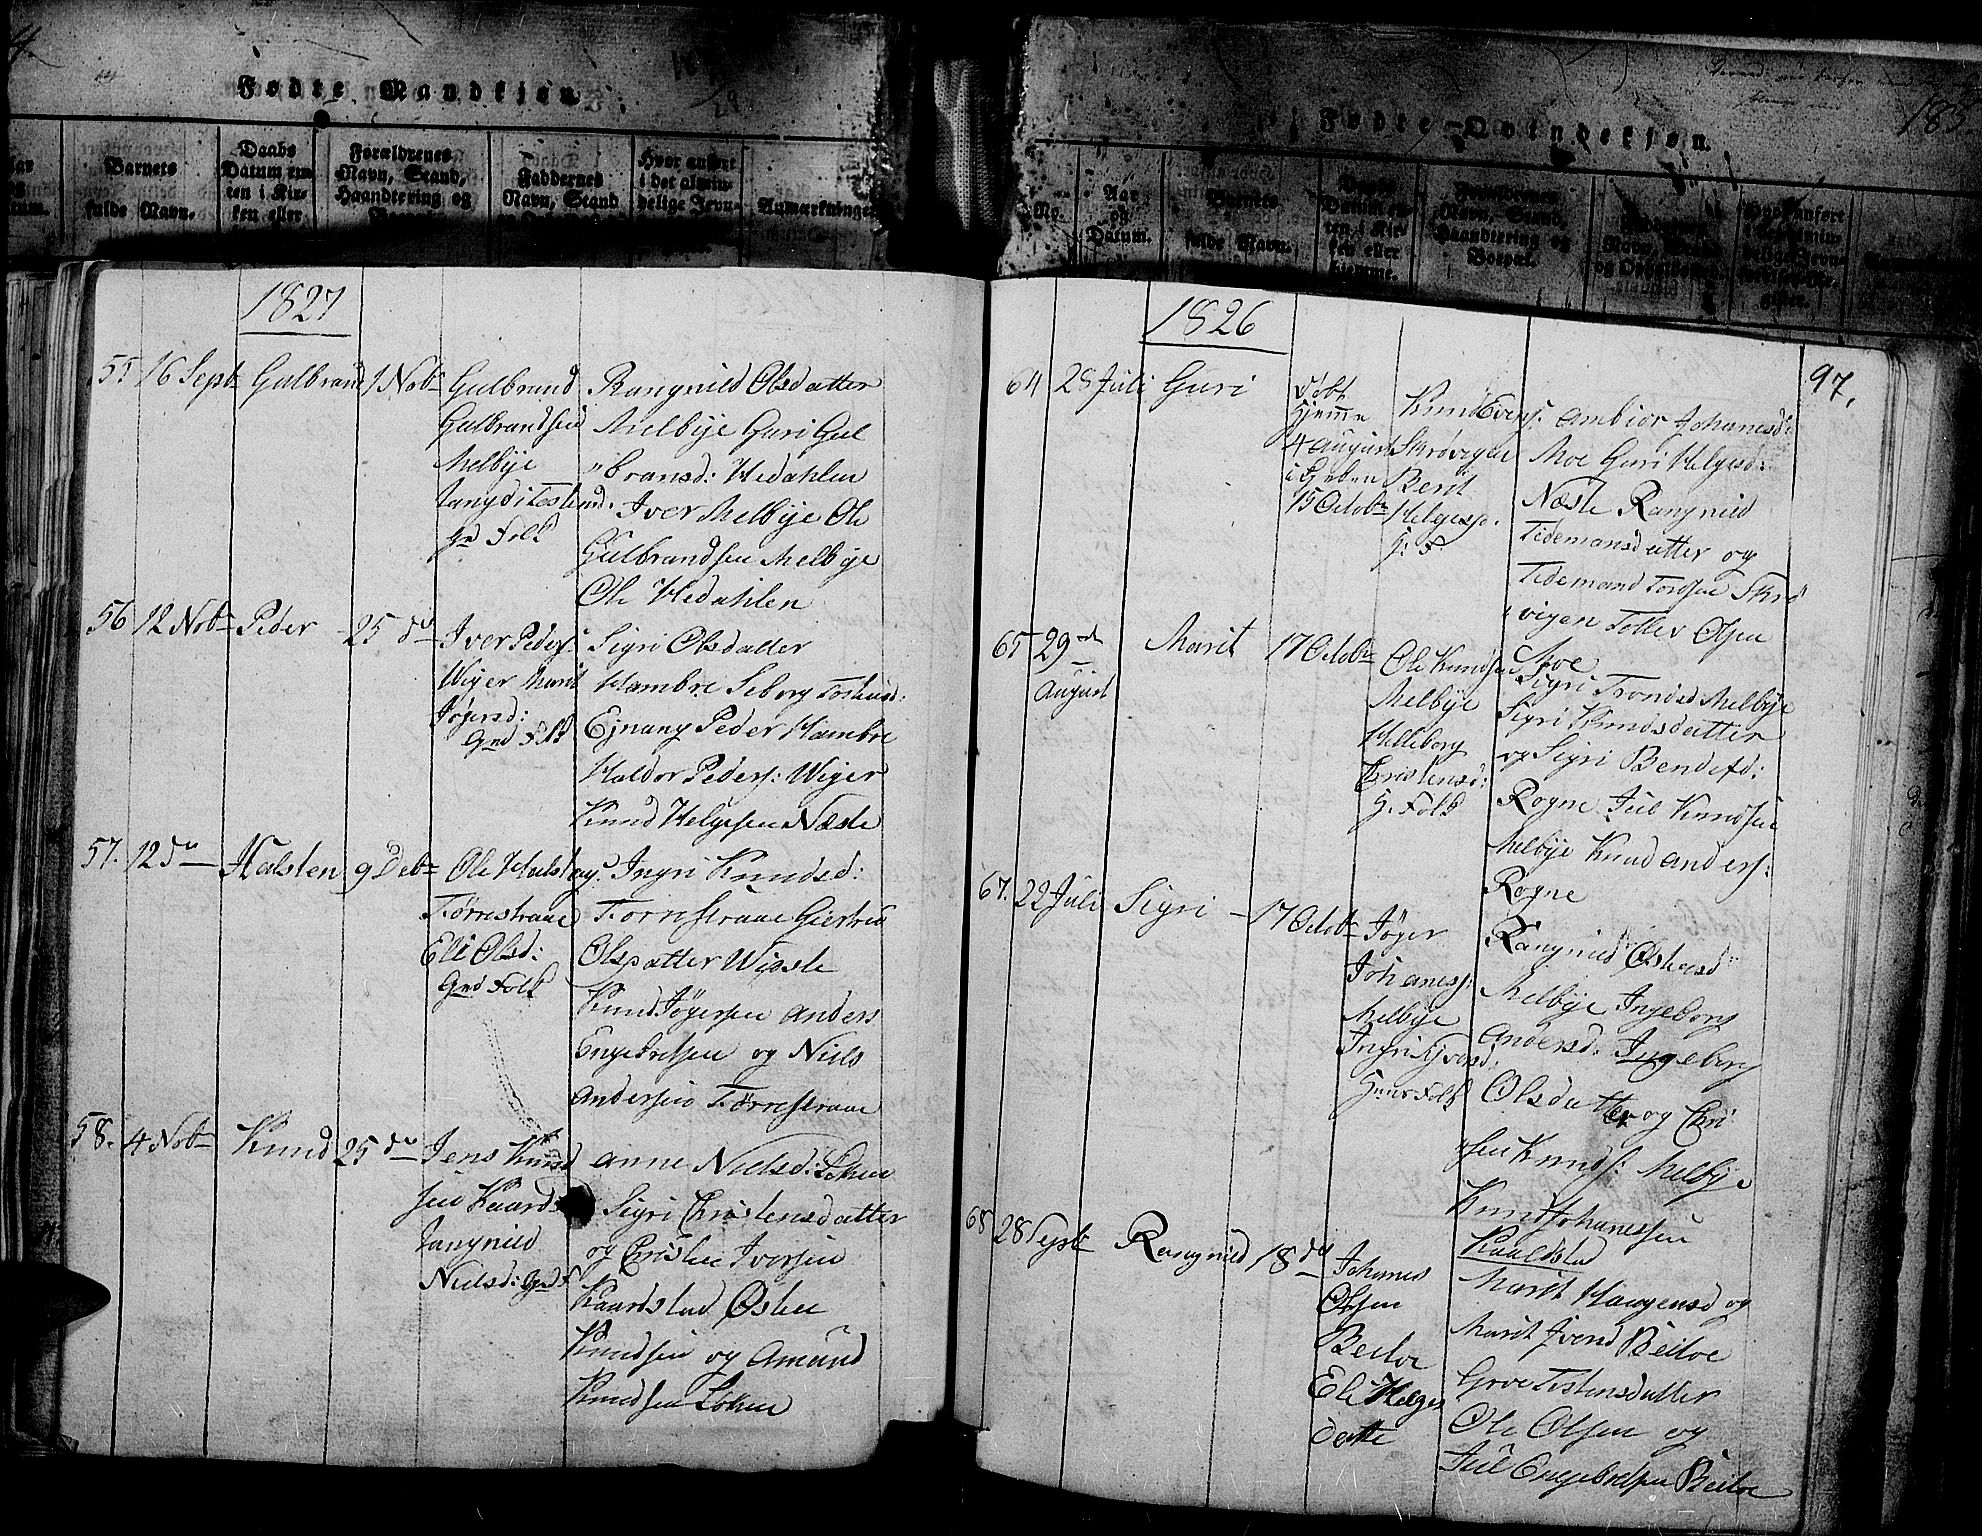 Fødte Mandkjøn
Barnets fulde Navn.
Daabs Datum enten i Kirken eller
Forældrenes Navn, Stand, Haandtering og
Faddernes Navn, Stand
Hvor anført i det almindelige Jevn-
Anmærkninger
1827
55. 16 Sept Gulbrand 1 Nob
Gulbrand
Gulbrandsen
Melbye
Gnd Folk
Rangnild Olsdatter
Melbye Guri Gul
bransd: Hedahlen
Iver Melbye Ole
Gulbrandsen Melbye
Ole Hedahlen
56 12 Nob Peder 25 do
Iver Peders:
Wiger Marit
Jøgersd:
Gnd Folk
Sigri Olsdatter
Hambre Seborg
Ejnang Peder Hambre
Haldor Peders: Wiger
Knud Helgesen Næste
57. 12 do Halsten 9 Deb
Ole Halsteng:
Tørrestraae
Eli Olsd:
Gnd Folk
Ingri Knudsd:
Tørrestraae Giertrud
Olsdatter Wigste
Knud Jøgersen Anders
Engebretsen og Niels
Andersen Tørrestraae
58. 4 Nob Knud 25 do
Jens Knud
sen Kaards
Rangnild
Nielsd: Gnd F
Anne Nielsd: Løken
Sigri Christensdatter
og Christen Iversen
Kaardstad Østen
Knudsen og Amund
Knudsen Løken
Fødte Qvindekjøn.
185
No.
Aar og Datum.
Barnets fulde Navn.
Daabs Datum enten i Kirken eller hjemme.
Forældrenes Navn, Stand, Haandtering og Bopæl.
1826
97.
64 28 Juli Guri
Døbt
hjemme
4 August
i Kirken
15 Octob
Knud Evens:
Skrøvigen
Berit
Helgesd.
G: F.
Ambior Johanesd:
Moe Guri Helgesd:
Næste Rangnild
Tidemansdatter og
Tidemand Tordsen Skrø
vigen Toller Olsen
Moe
65 29de August Marit 17 Octob
Ole Knudsen
Melbye
Helleborg
Christensd:
G. Folk
Sigri Trondsd Melbye
Sigri Knudsdatter
og Sigri Bendtsd:
Rogne Juel Knudsen
Melbye Knud Anders:
Rogne
67. 22 Juli Sigri 17 Octob
Jøger
Johaness:
Melbye
Ingri
Folk
Rangnild Østensd
Melbye Ingeborg
Andersd: Ingeborg
Olsdatter og Chri
sten Knuds: Melbye
Knud Johanessen
Kaaldstad
68 28 Sept Rangnild 18 do
Johanes
Olsen
Beitoe
Eli Helges
datte
Marit Haagensd og
Marit Iversd Beitoe
Groe Tostensdatter
Ole Olsen og
Juel Engebretsen Beitoe